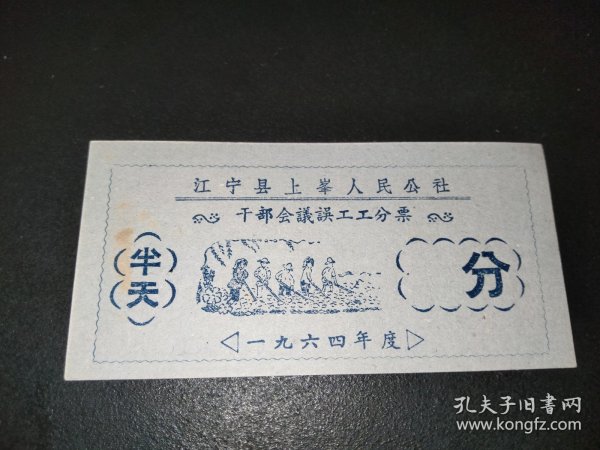 江宁县上峯人民公社
干部会議誤工工分票
半天
分
一九六四年度
孔夫子旧書网
www.kongfz.com